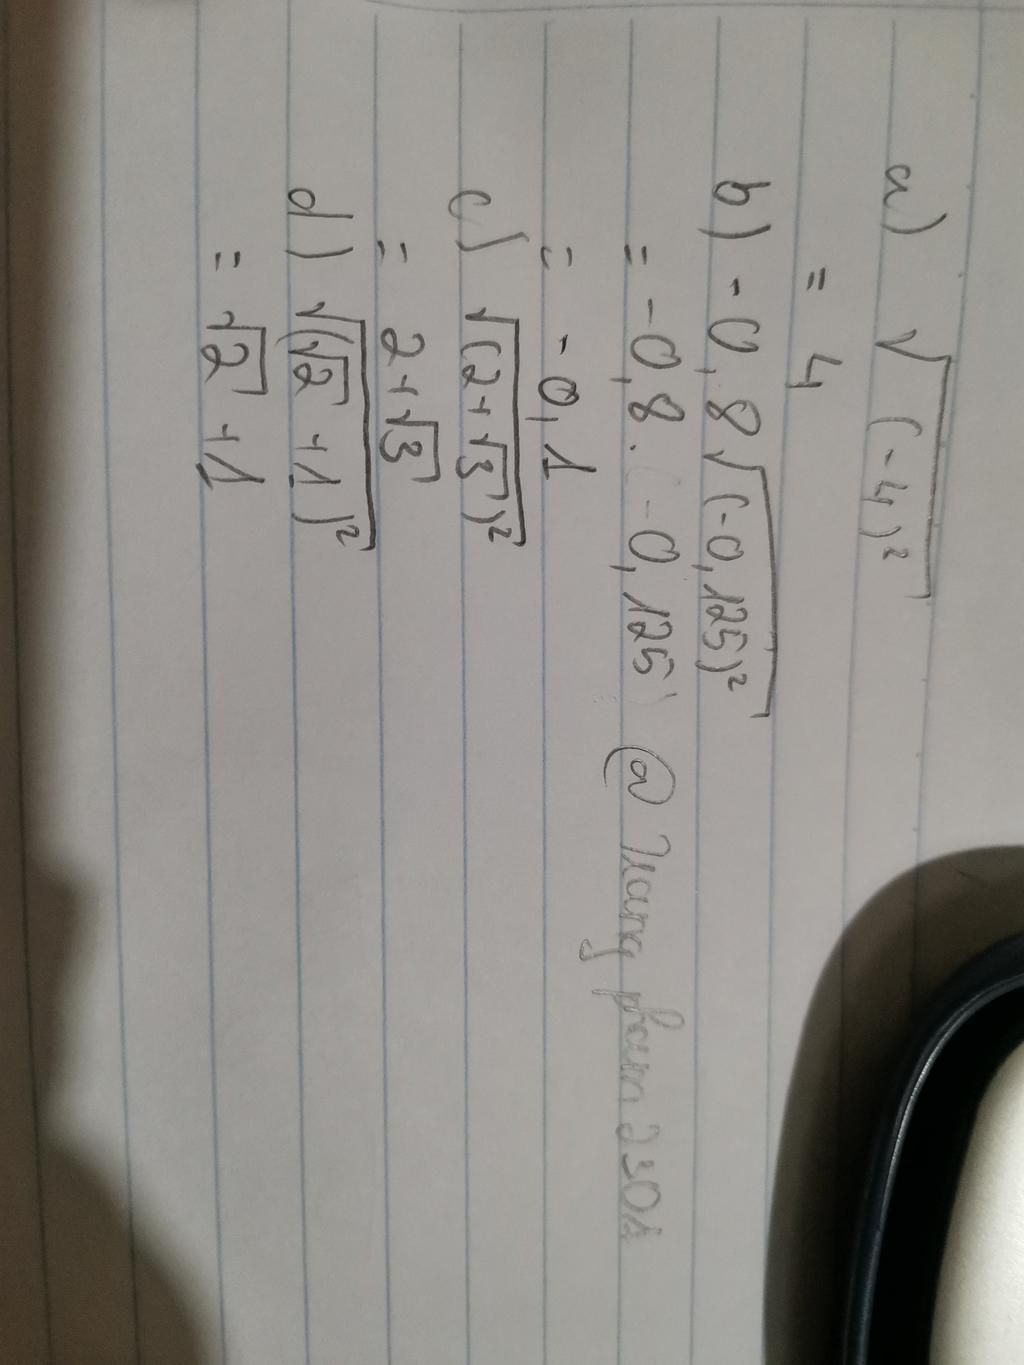 a) √(-4)²
= 4
b) -0,8√(-0,125)²
= -0,8.(-0,125) @ Trang pham 2301
= -0,1
c) √(2+√3)²
= 2+√3
d) √(√2+1)²
= √2+1